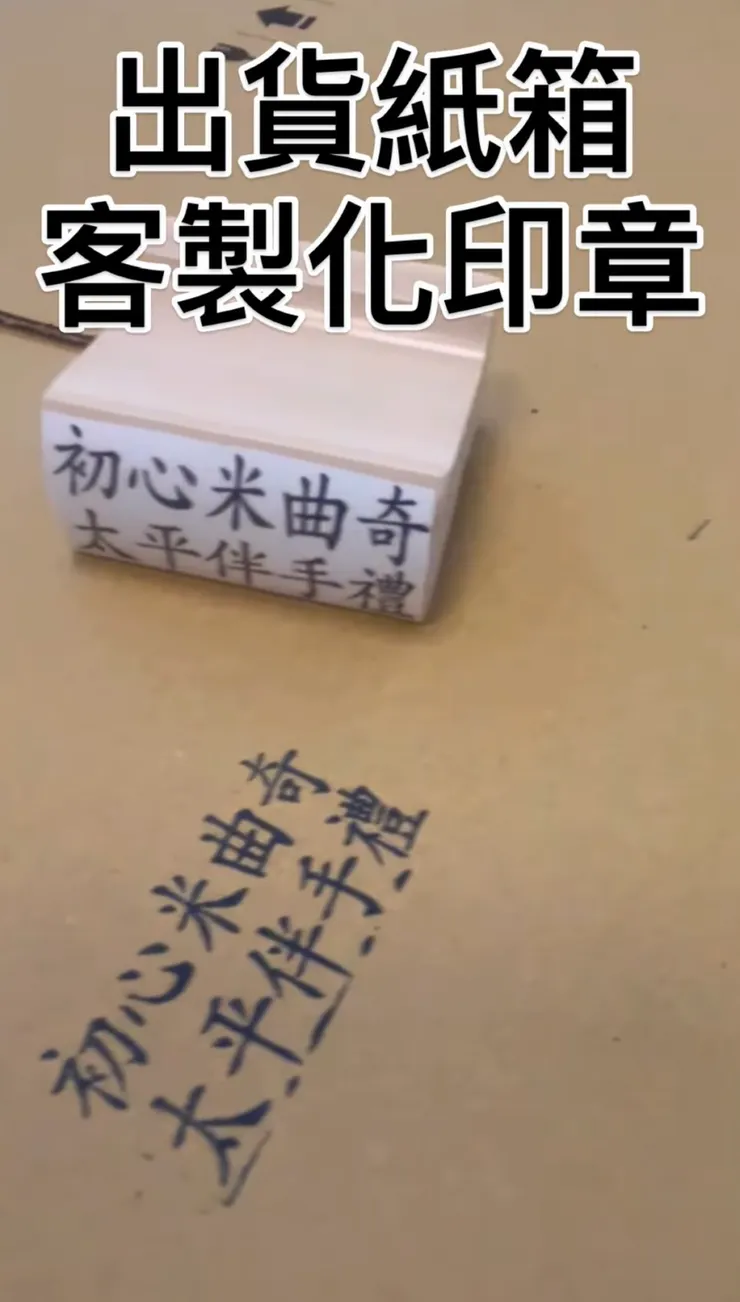 出貨紙箱
客製化印章
初心米曲奇
太平伴手禮
初心米曲奇
太平伴手禮